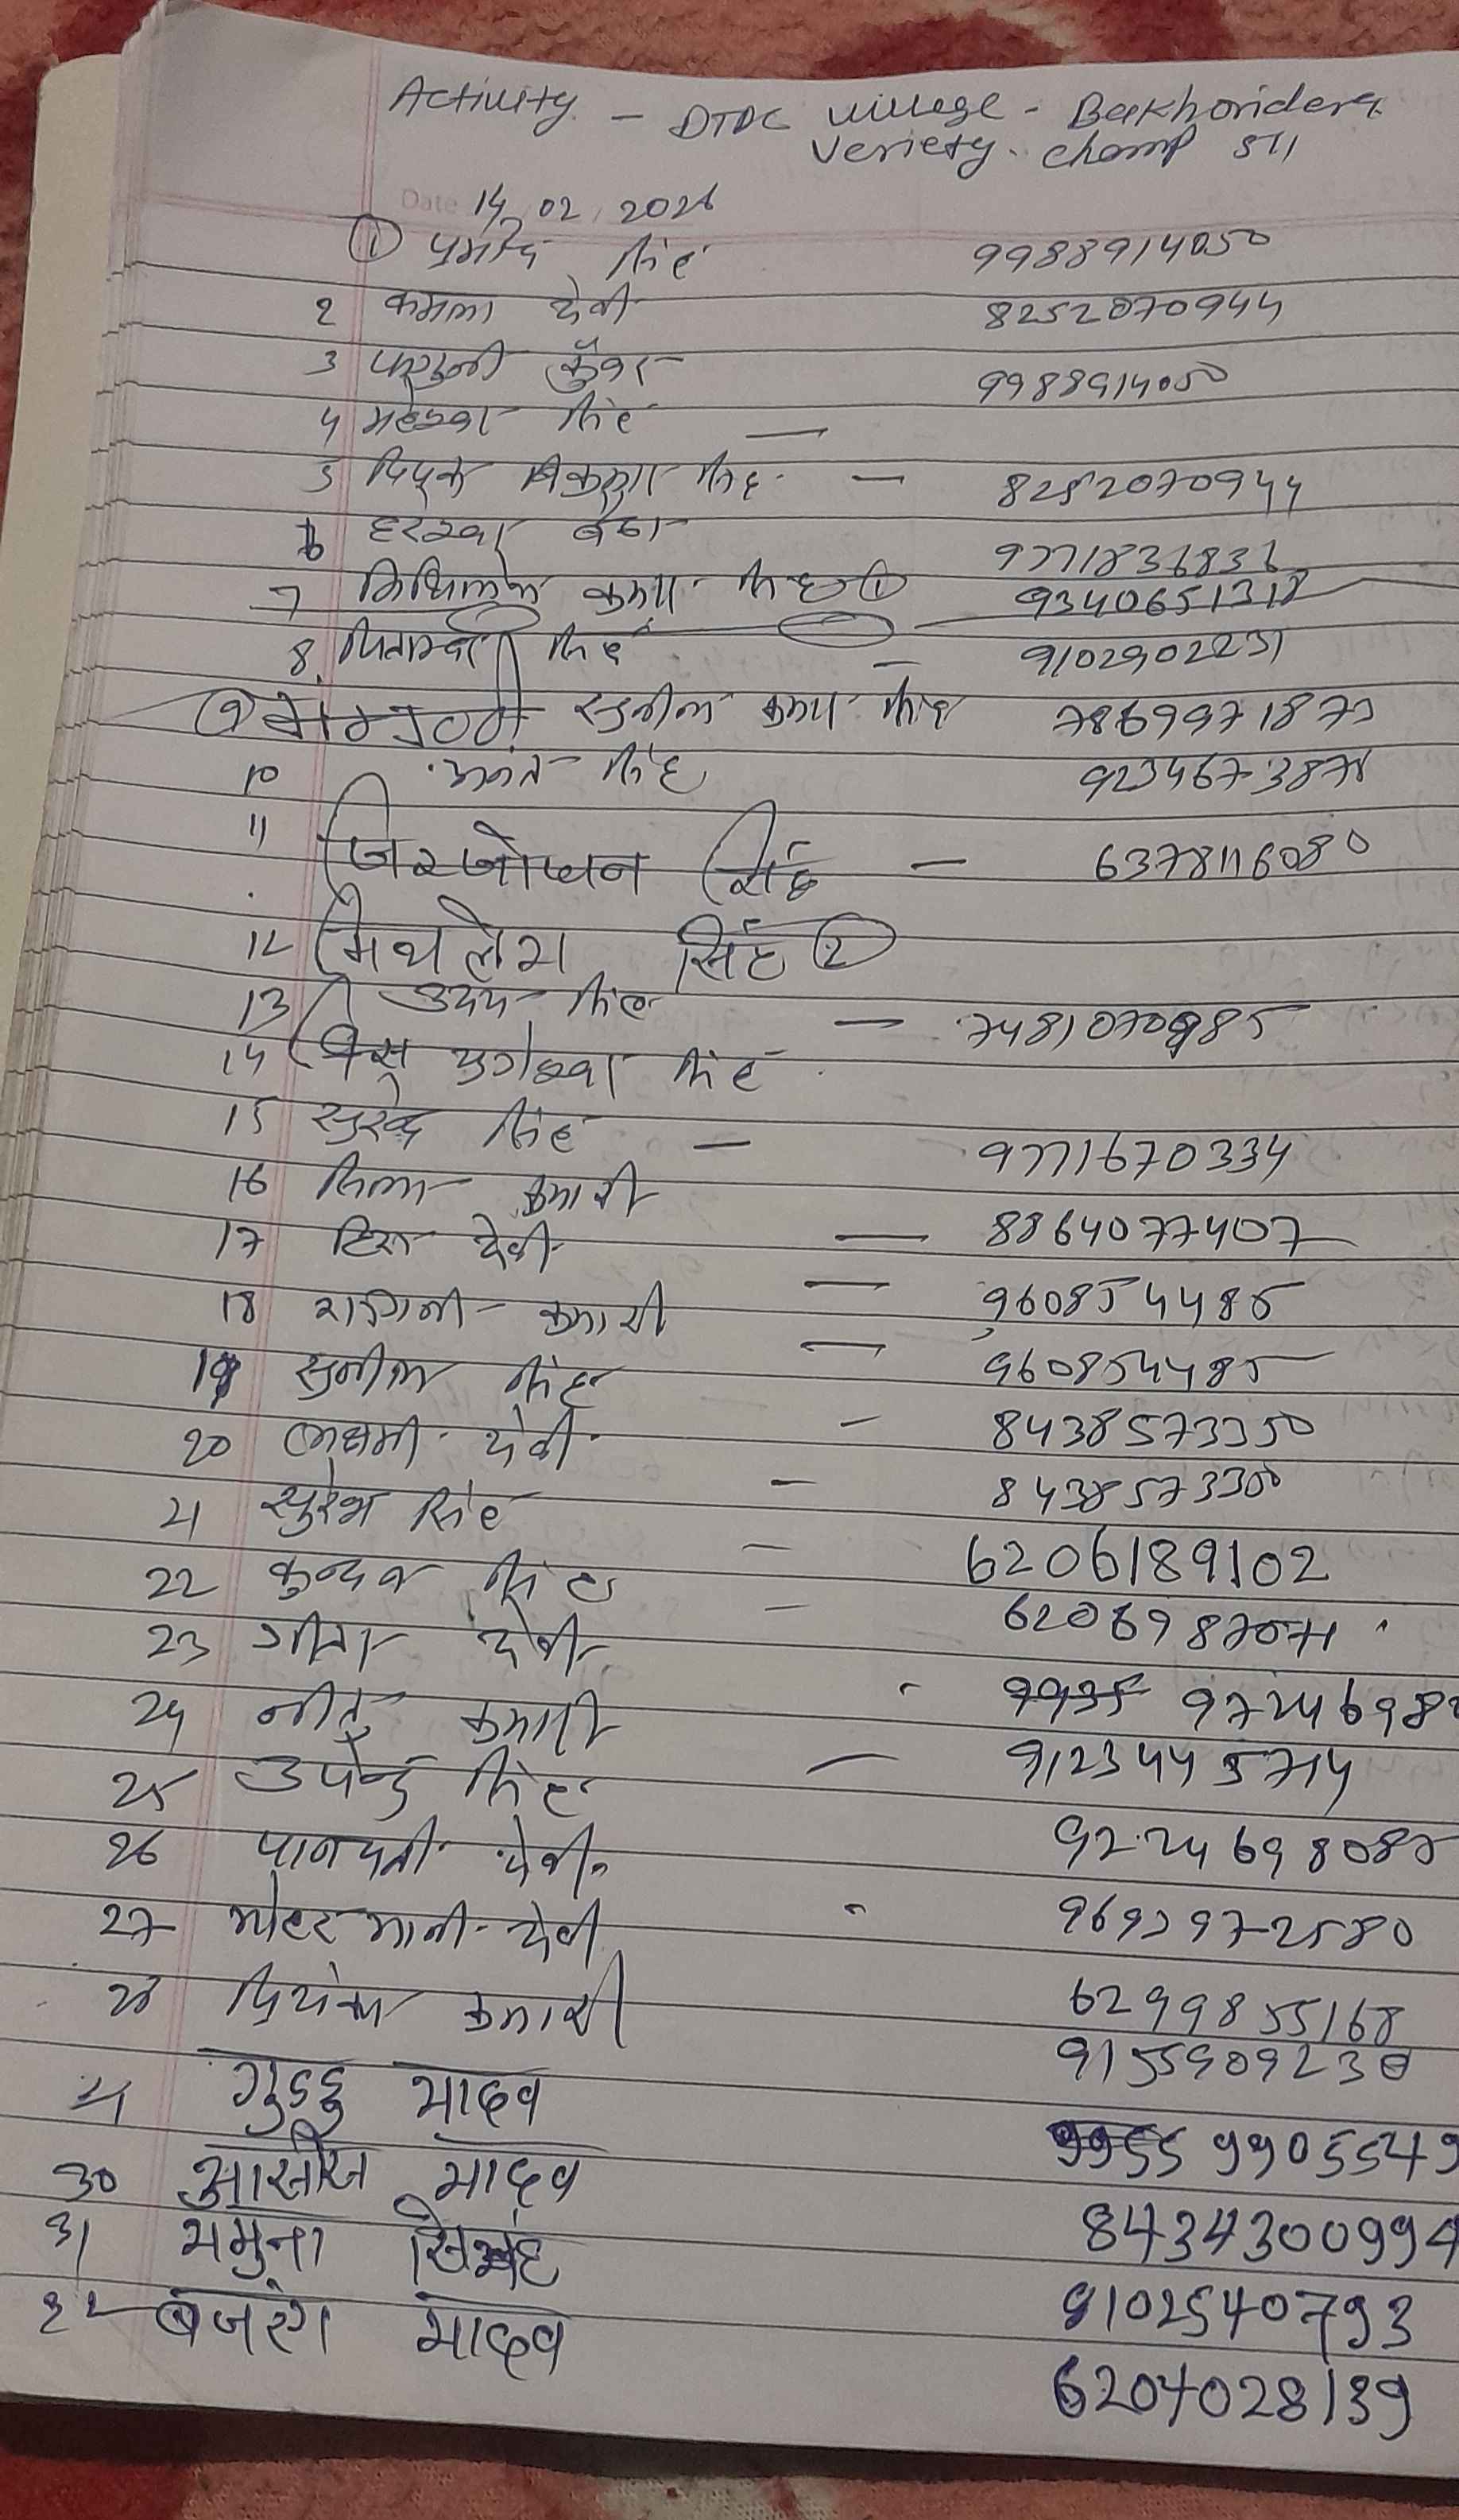 Activity - DTDC village - Bakhoridera
Veriety - champ 511
Date 14, 02, 2026
① प्रमोद सिंह 9988914050
2 कमला देवी 8252070944
3 फागुनी कुँवर 9988914050
4 महेश्वर सिंह —
5 दिपक कुमार सिंह - 8252070944
6 हरेश्वर बैठा 9771836836
7 मिथिलेश कुमार सिंह ① 9340651318
8. पिताम्बर सिंह - 9102902231
⑨ सुनील कुमार सिंह 7869971873
10 सिंह 9234673878
11 सिंह - 6378116080
12 मिथलेश सिंह ②
13 उदय सिंह - 7481070985
14 सिंह
15 सुरेन्द्र सिंह - 9771670334
16 कुमारी
17 देवी - 8864077407
18 रागिनी कुमारी - 960854485
19 सुनील सिंह - 960854485
20 लक्ष्मी देवी - 8438573350
21 सुरेश सिंह - 8438573300
22 कुन्दन सिंह - 6206189102
23 गीता देवी - 6206987071
24 नीतु कुमारी 9935 97246982
25 उपेन्द्र सिंह - 9123445714
26 पानपती देवी 9224698080
27 देवी 9693972580
28 प्रियंका कुमारी 6299855168
9155909230
गुडडु यादव
यादव 9955 9905549
30
31 यमुना सिंह 8434300994
32 बजरंग यादव 9102540793
6204028139